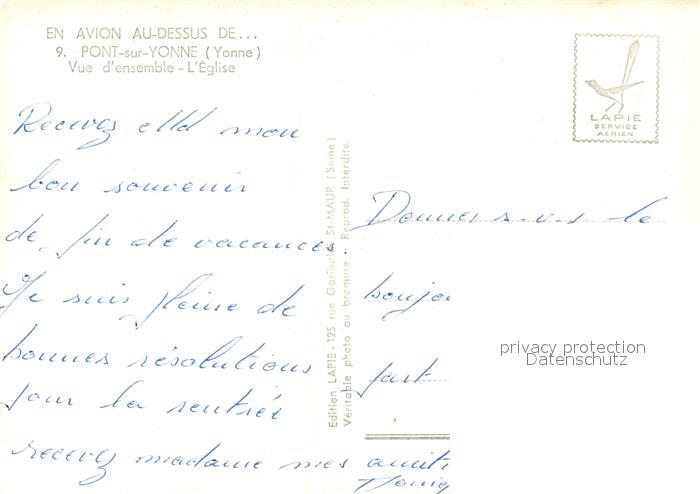 EN AVION AU-DESSUS DE...
9. PONT-sur-YONNE (Yonne)
Vue d'ensemble - L'Église
LAPIE
SERVICE
AERIEN
Recevez Mld mon
bon souvenir
de fin de vacances
Je suis pleine de
bonnes résolutions
pour la rentrée
recevez madame mes amiti
Edition LAPIE - 125 rue Garibaldi St-MAUR (Seine)
Véritable photo au bromure - Reprod. Interdite.
le
bonjou
privacy protection
Datenschutz